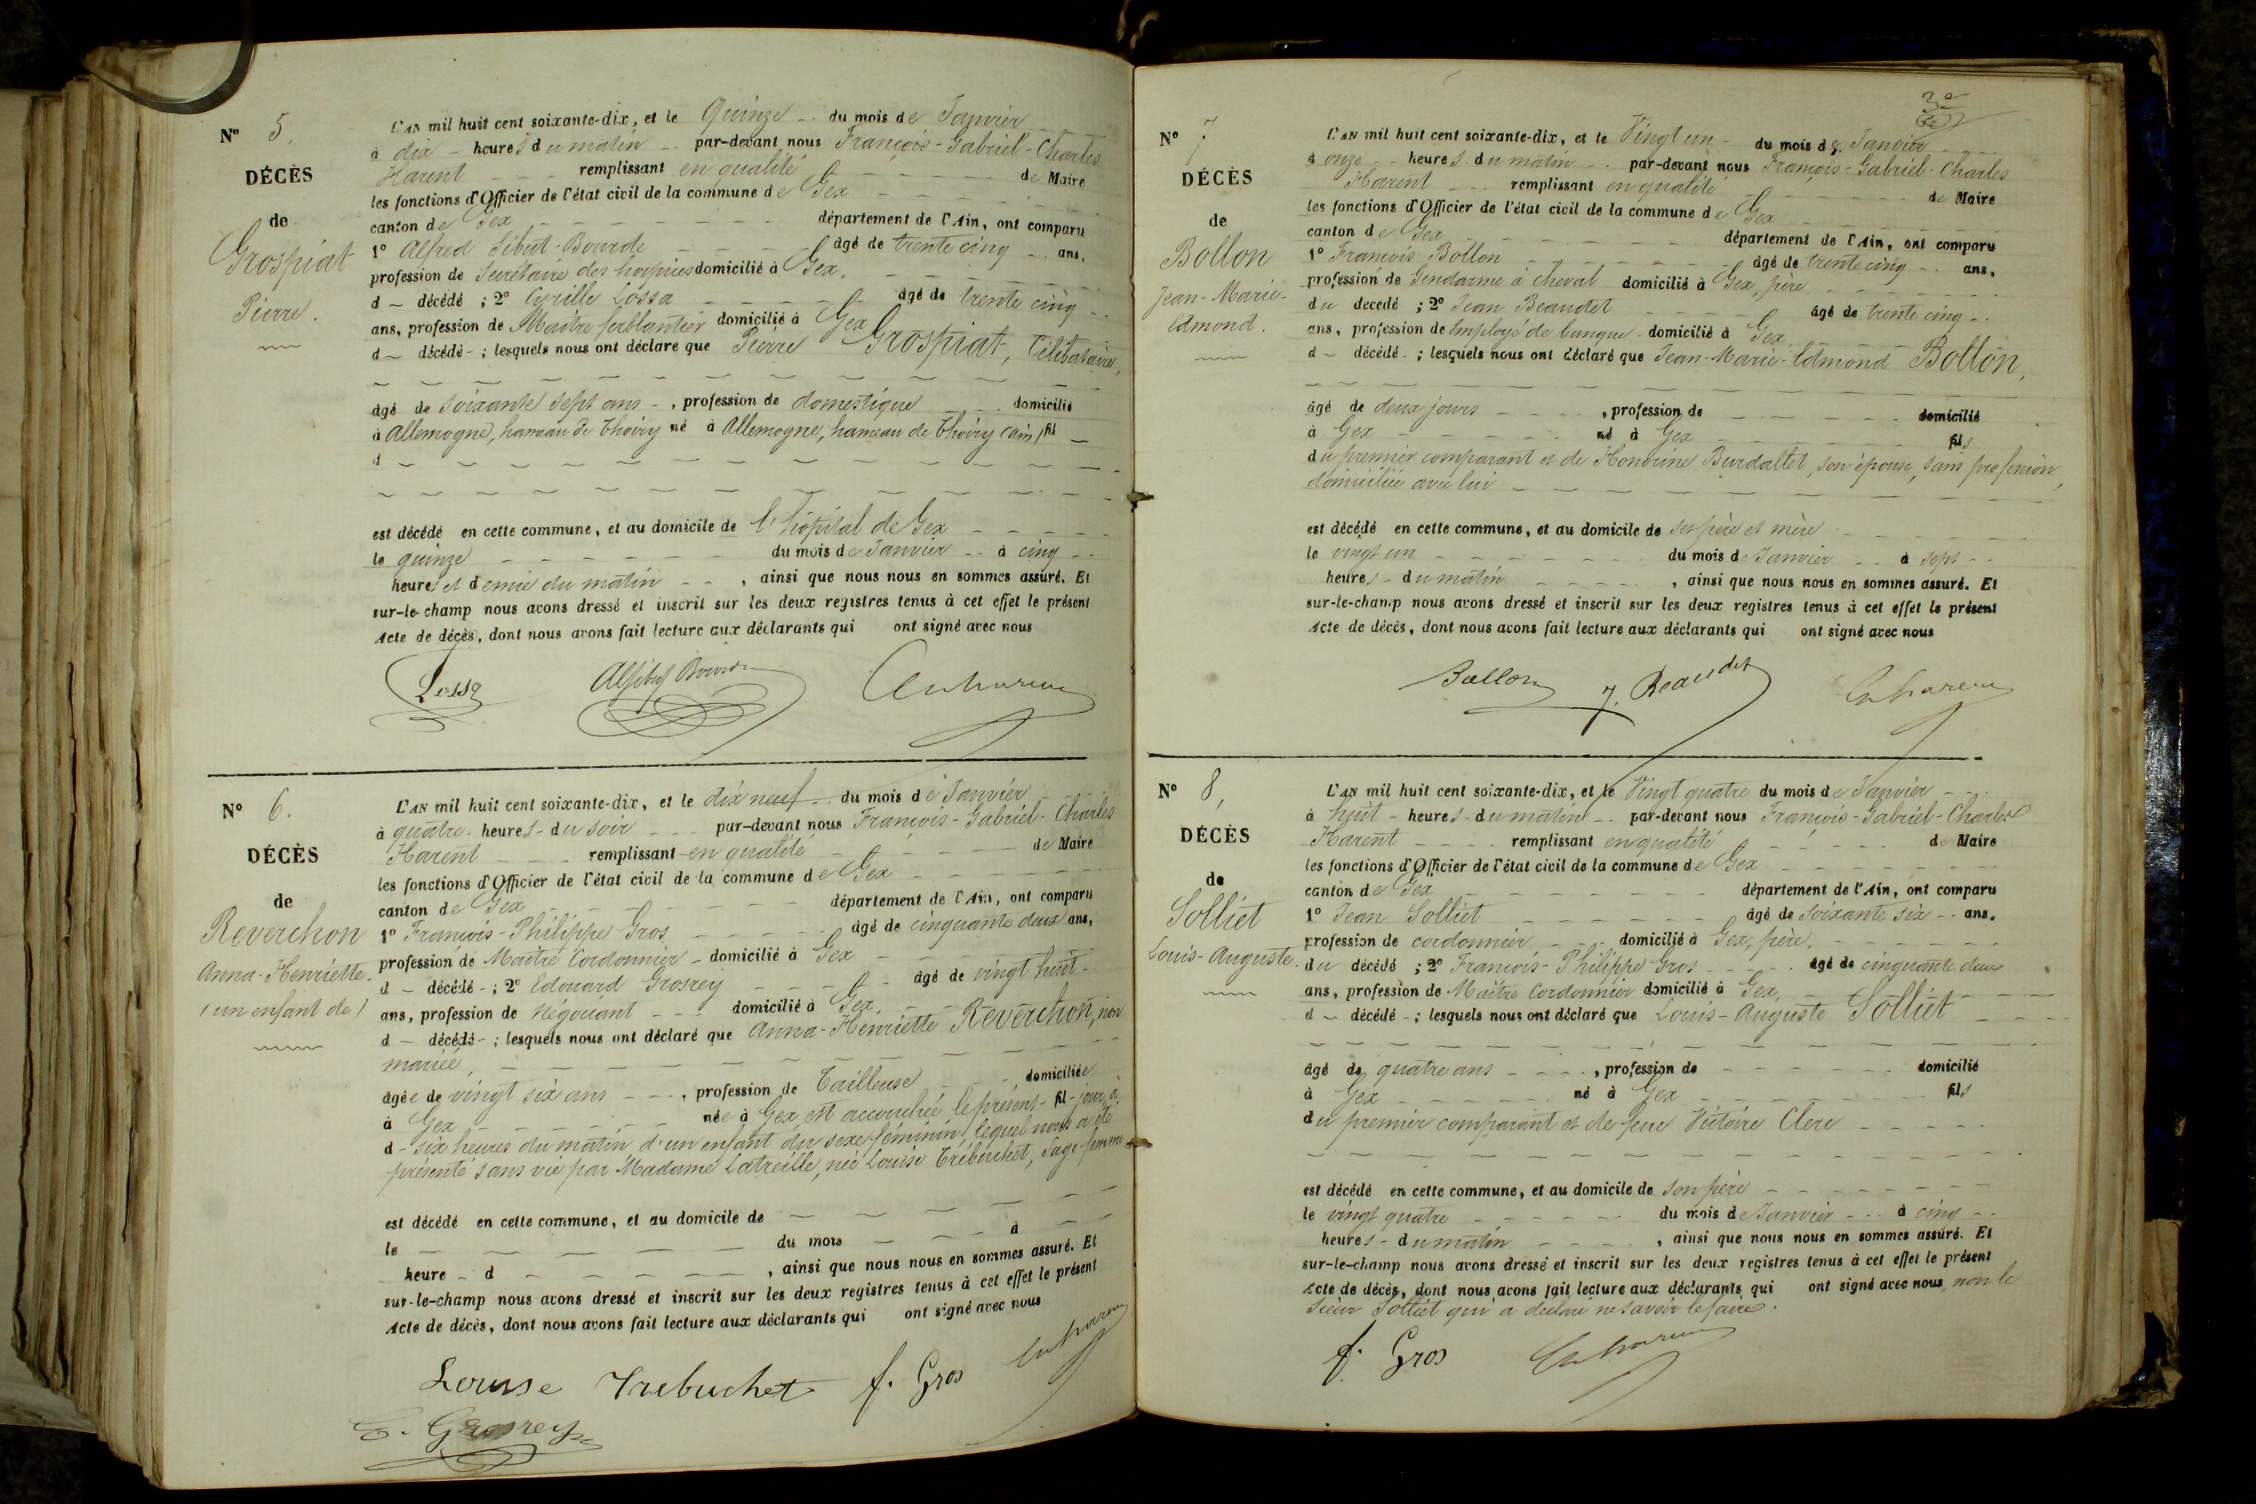 N° 5.
DÉCÈS
de
Grospiat
Pierre.
L'AN mil huit cent soixante-dix, et le Quinze du mois de Janvier
à dix heures du matin par-devant nous François-Gabriel-Charles
Harent remplissant en qualité de Maire
les fonctions d'Officier de l'état civil de la commune de Gex
canton de Gex département de l'Ain, ont comparu
1° Alfred Sibut-Bourde âgé de trente cinq ans,
profession de Secrétaire des hospices domicilié à Gex.
d décédé ; 2° Cyrille Lossa âgé de trente cinq
ans, profession de Maître ferblantier domicilié à Gex
d décédé ; lesquels nous ont déclaré que Pierre Grospiat, Célibataire,
âgé de soixante sept ans, profession de domestique domicilié
à Allemogne, hameau de Thoiry né à Allemogne, hameau de Thoiry (Ain) fil
d
est décédé en cette commune, et au domicile de l'hôpital de Gex
le quinze du mois de Janvier à cinq
heures et demie du matin, ainsi que nous nous en sommes assuré. Et
sur-le-champ nous avons dressé et inscrit sur les deux registres tenus à cet effet le présent
Acte de décès, dont nous avons fait lecture aux déclarants qui ont signé avec nous
Lossa
N° 6.
DÉCÈS
de
Reverchon
Anna-Henriette.
(un enfant de)
L'AN mil huit cent soixante-dix, et le dix neuf du mois de Janvier
à quatre heures du soir par-devant nous François-Gabriel-Charles
Harent remplissant en qualité de Maire
les fonctions d'Officier de l'état civil de la commune de Gex
canton de Gex département de l'Ain, ont comparu
1° François-Philippe Gros âgé de cinquante deux ans,
profession de Maître Cordonnier domicilié à Gex
d décédé ; 2° Edouard Grosrey âgé de vingt huit
ans, profession de Négociant domicilié à Gex,
d décédé ; lesquels nous ont déclaré que Anna-Henriette Reverchon, non
mariée,
âgée de vingt six ans, profession de Tailleuse domiciliée
à Gex née à Gex, est accouchée le présent fil jour, à
d six heures du matin d'un enfant du sexe féminin, lequel nous a été
présenté sans vie par Madame Latreille, née Louise Trébuchet, Sage-femme
est décédé en cette commune, et au domicile de
le du mois à
heure d , ainsi que nous nous en sommes assuré. Et
sur-le-champ nous avons dressé et inscrit sur les deux registres tenus à cet effet le présent
Acte de décès, dont nous avons fait lecture aux déclarants qui ont signé avec nous
Louise Trebuchet f. Gros
E. Grosrey
N° 7
DÉCÈS
de
Bollon
Jean-Marie-
Edmond.
L'AN mil huit cent soixante-dix, et le Vingt un du mois de Janvier
à onze heures du matin par-devant nous François-Gabriel-Charles
Harent remplissant en qualité de Maire
les fonctions d'Officier de l'état civil de la commune de Gex
canton de Gex département de l'Ain, ont comparu
1° François Bollon âgé de trente cinq ans,
profession de Gendarme à cheval domicilié à Gex, père
du décédé ; 2° Jean Beaudet âgé de trente cinq
ans, profession de Employé de banque domicilié à Gex
d décédé ; lesquels nous ont déclaré que Jean-Marie-Edmond Bollon,
âgé de deux jours, profession de domicilié
à Gex né à Gex fils
du premier comparant et de Honorine Burdallet, son épouse, sans profession,
domiciliée avec lui
est décédé en cette commune, et au domicile de ses père et mère
le vingt un du mois de Janvier à sept
heures du matin, ainsi que nous nous en sommes assuré. Et
sur-le-champ nous avons dressé et inscrit sur les deux registres tenus à cet effet le présent
Acte de décès, dont nous avons fait lecture aux déclarants qui ont signé avec nous
Bollon J. Beaudet
N° 8,
DÉCÈS
de
Solliet
Louis-Auguste.
L'AN mil huit cent soixante-dix, et le Vingt quatre du mois de Janvier
à huit heures du matin par-devant nous François-Gabriel-Charles
Harent remplissant en qualité de Maire
les fonctions d'Officier de l'état civil de la commune de Gex
canton de Gex département de l'Ain, ont comparu
1° Jean Solliet âgé de soixante six ans,
profession de cordonnier domicilié à Gex, père,
du décédé ; 2° François-Philippe Gros âgé de cinquante deux
ans, profession de Maître Cordonnier domicilié à Gex,
d décédé ; lesquels nous ont déclaré que Louis-Auguste Solliet
âgé de quatre ans, profession de domicilié
à Gex né à Gex fils
du premier comparant et de feue Victoire Clerc
est décédé en cette commune, et au domicile de son père
le vingt quatre du mois de Janvier à cinq
heures du matin, ainsi que nous nous en sommes assuré. Et
sur-le-champ nous avons dressé et inscrit sur les deux registres tenus à cet effet le présent
Acte de décès, dont nous avons fait lecture aux déclarants qui ont signé avec nous, non le
sieur Solliet qui a déclaré ne savoir le faire.
f. Gros